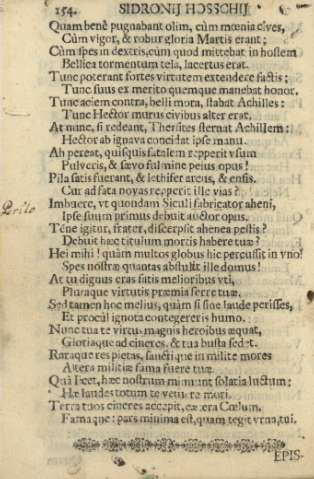 154. SIDRONII HOSSCHII
Quam benè pugnabant olim, cùm mœnia cives,
Cùm vigor, & robur gloria Martis erant:
Cùm spes in dextris, cùm quod mittebat in hostem
Bellica tormentum tela, lacertus erat.
Tunc poterant fortes virtutem extendere factis:
Tunc suus ex merito quemque manebat honor.
Tunc aciem contra, belli mora, stabat Achilles:
Tunc Hector murus civibus alter erat.
At nunc, si redeant, Thersites sternat Achillem:
Hector ab ignava concidat ipse manu.
Ah pereat, quisquis fatalem repperit usum
Pulveris, & sævo fulmine peius opus!
Pila satis fuerant, & lethifer arcus, & ensis.
Cur ad fata novas repperit ille vias?
Perilo
Imbuere, ut quondam Siculi fabricator aheni,
Ipse suum primus debuit auctor opus.
Téne igitur, frater, discerpsit ahenea pestis?
Debuit hæc titulum mortis habere tuæ?
Hei mihi! quàm multos globus hic percussit in uno!
Spes nostræ quantas abstulit ille domus!
At tu dignus eras fatis melioribus uti,
Pluraque virtutis præmia ferre tuæ.
Sed tamen hoc melius, quàm si sine laude perisses,
Et procul ignota contegereris humo.
Nunc tua te virtus magnis heroibus æquat,
Gloriaque ad cineres, & tua busta sedet.
Raraque res pietas, sanctique in milite mores
Altera militiæ fama fuere tuæ.
Quà licet, hæc nostrum minuunt solatia luctum:
Hæ laudes totum te vetuere mori.
Terra tuos cineres accepit, cætera Cœlum,
Famaque: pars minima est, quam tegit urna, tui.
EPIS-